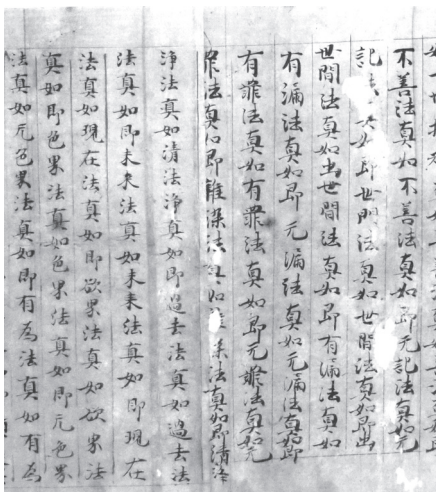 不善法真如不善法真如即无記法真如无
記法真如即世間法真如世間法真如即出
世間法真如出世間法真如即有漏法真如
有漏法真如即无漏法真如无漏法真如即
有罪法真如有罪法真如即无罪法真如无
罪法真如即雜染法真如雜染法真如即清淨
淨法真如清法淨真如即過去法真如過去法
法真如即未来法真如未来法真如即現在
法真如現在法真如即欲界法真如欲界法
真如即色界法真如色界法真如即无色界
法真如无色界法真如即有為法真如有為